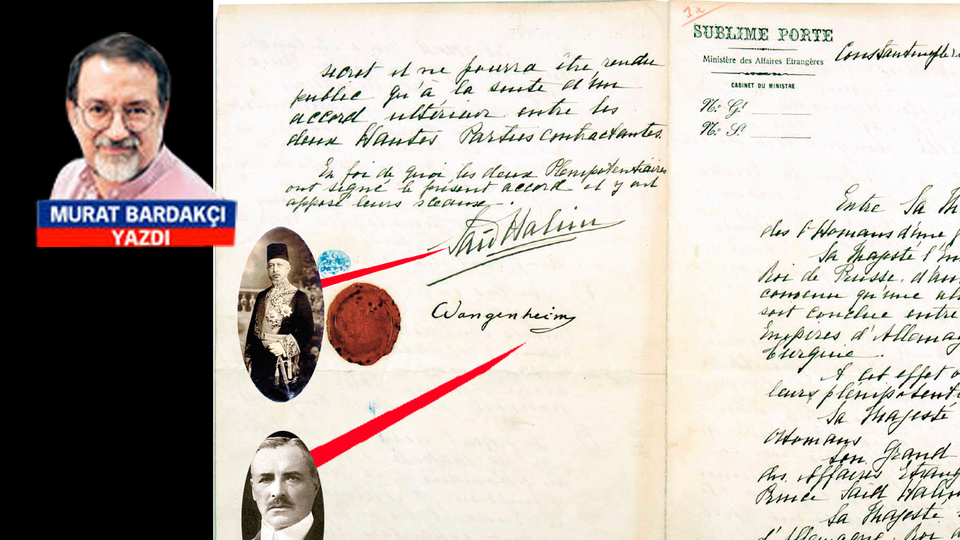 MURAT BARDAKÇI
YAZDI
secret et ne pourra être rendu
public qu'à la suite d'un
accord ultérieur entre les
deux Hautes Parties contractantes.
En foi de quoi les deux Plénipotentiaires
ont signé le présent accord et y ont
apposé leurs sceaux.
Said Halim
Wangenheim
1a
SUBLIME PORTE
Ministère des Affaires Etrangères
CABINET DU MINISTRE
Constantinople le
N.º G.l
N.º S.l
Entre Sa
des Ottomans d'une
Sa Majesté
Roi de Prusse, d'au
convenu qu'une al
soit conclue entre
Empires d'Allemag
Turquie.
A cet effet
leurs plénipotenti
Sa Majesté
Ottomans
Son Grand
des Affaires Etrang
Prince Said Halim
Sa Majesté
d'Allemagne, Roi